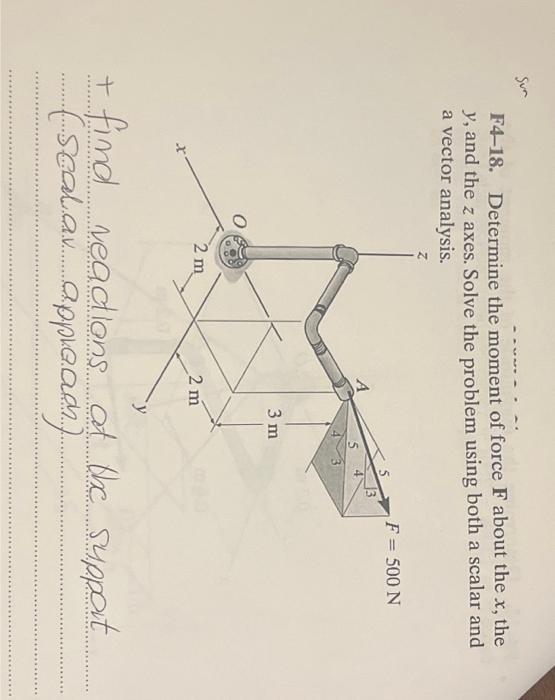 sun
F4–18. Determine the moment of force F about the x, the
y, and the z axes. Solve the problem using both a scalar and
a vector analysis.
z
A
5
4
3
F = 500 N
5
4
3
3 m
O
2 m
2 m
x
y
+ find reactions at the support
(scalar approach)